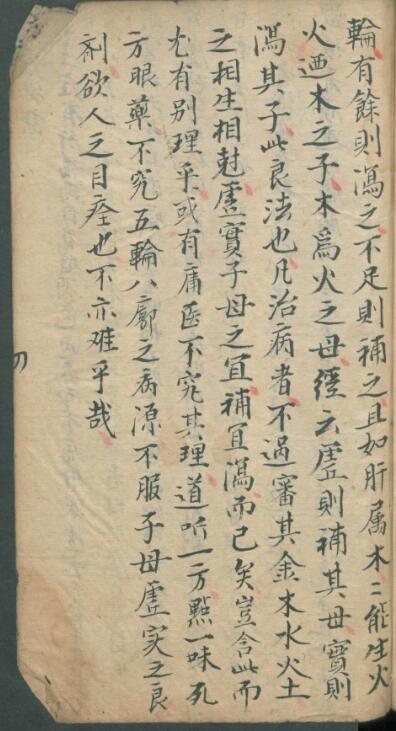 輪有餘則瀉之不足則補之且如肝属木〻能生火
火迺木之子木爲火之母經云虗則補其母實則
瀉其子此良法也凡治病者不过審其金木水火土
之相生相尅虗實子母之宜補宜瀉而已矣豈舍此而
尤有别理乎或有庸医不究其理道听一方點一味死
方眼藥不究五輪八廓之病源不服子母虗实之良
剤欲人之目痊也不亦难乎哉